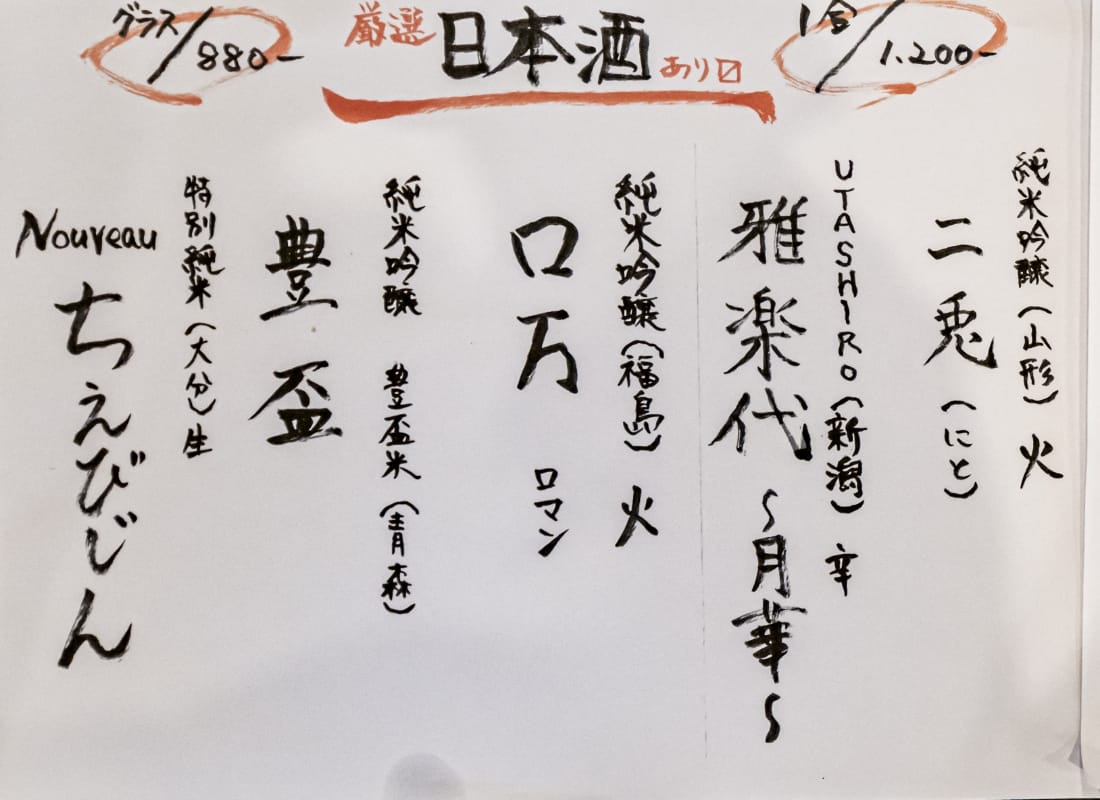 グラス/880-
厳選 日本酒 あり〼
1合/1.200-
純米吟醸(山形) 火
二兎(にと)
UTASHIRO(新潟) 辛
雅楽代 〜月華〜
純米吟醸(福島) 火
ロ万 ロマン
純米吟醸 豊盃米(青森)
豊盃
特別純米(大分)生
Nouveau ちえびじん